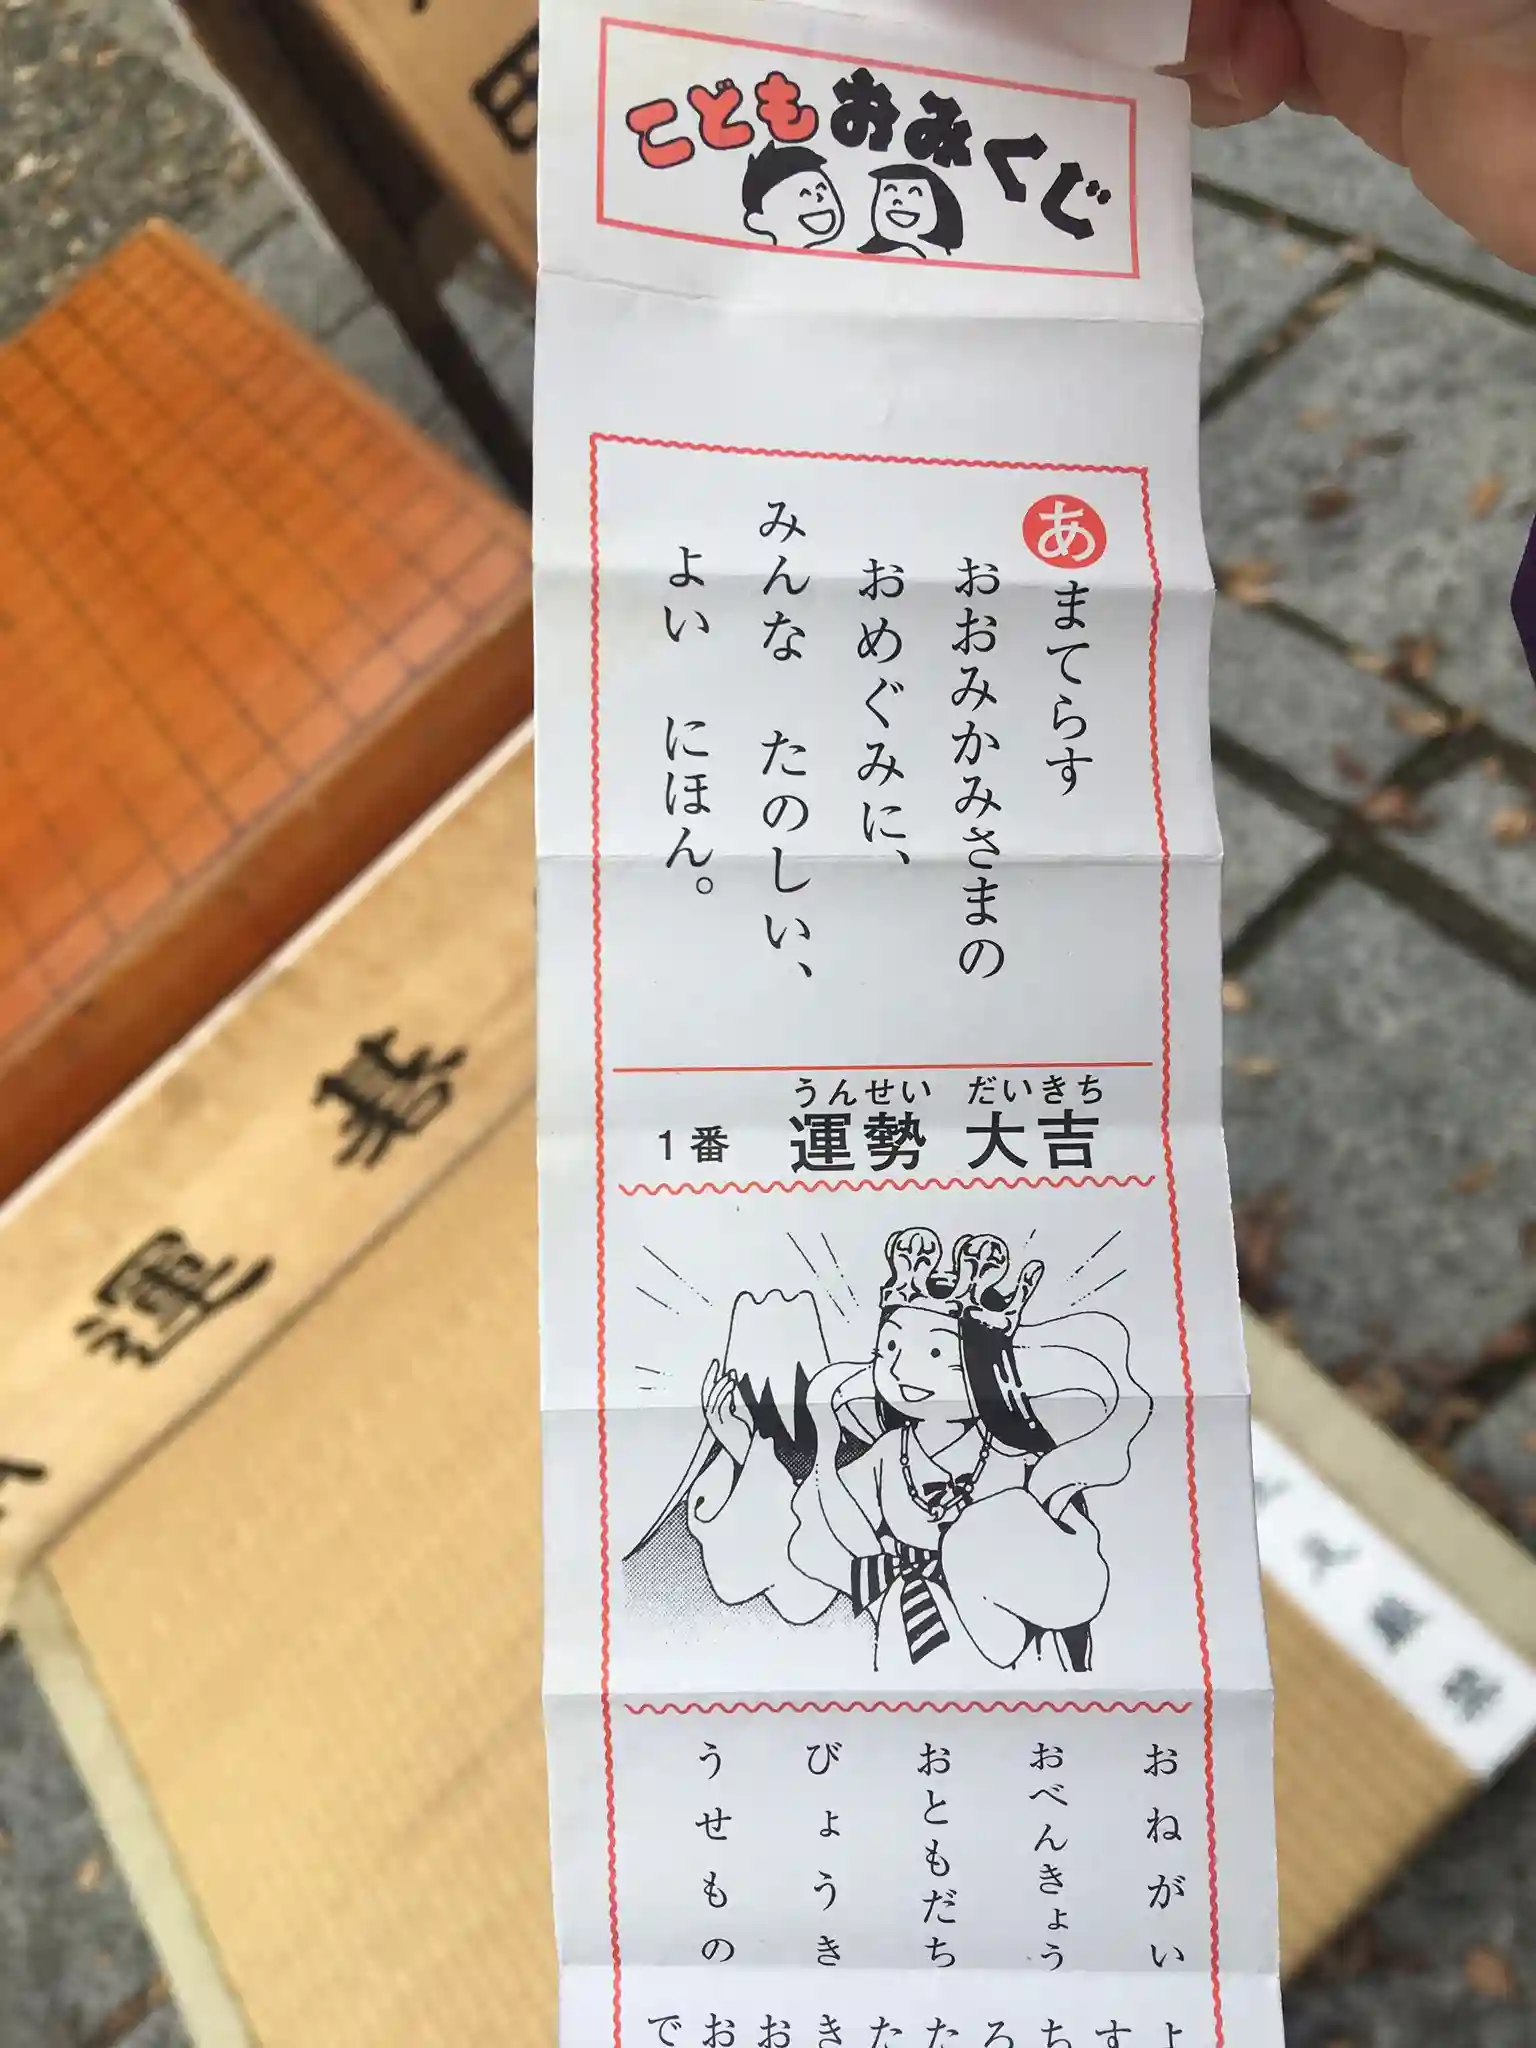 こどもおみくじ
あまてらす
おおみかみさまの
おめぐみに、
みんな たのしい、
よい にほん。
うんせい だいきち
1番 運勢 大吉
おねがい
おべんきょう
おともだち
びょうき
うせもの
よ
す
ち
ろ
た
た
き
お
お
で
碁
運